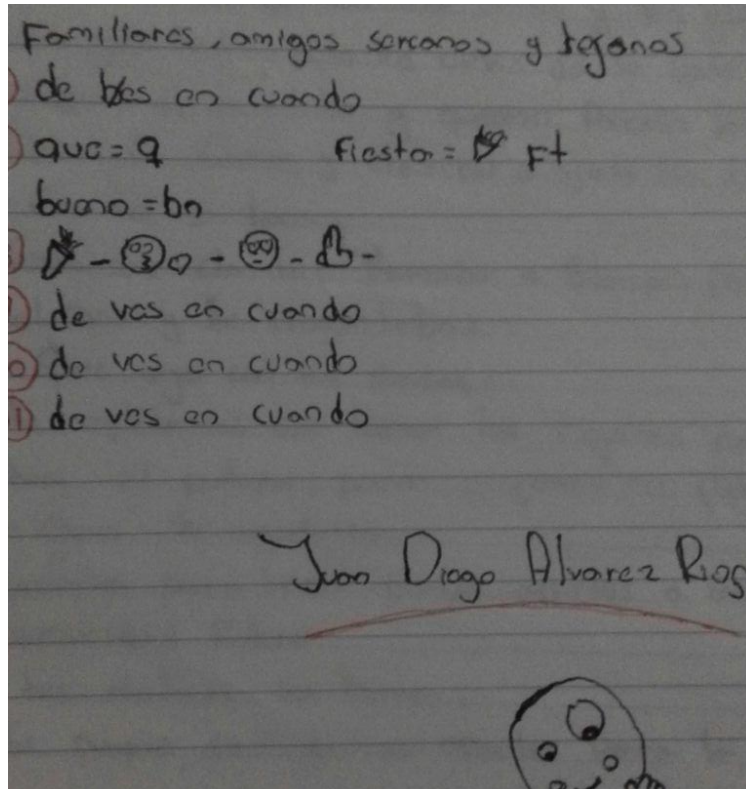 Familiares, amigos sercanos y lejanos
de bes en cuando
que = q Fiesta = Ft
bueno = bn
de ves en cuando
de ves en cuando
de ves en cuando
Juan Diego Alvarez Rios